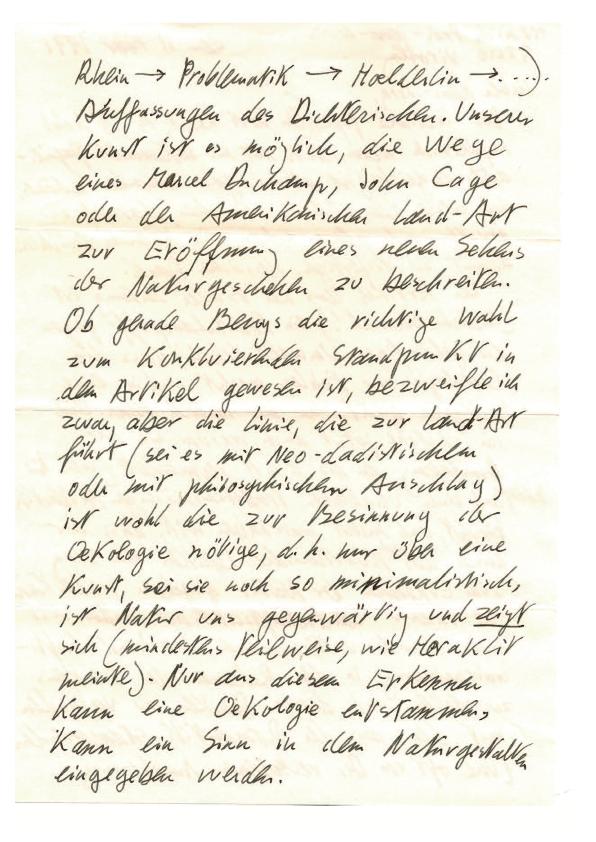 Rhein → Problematik → Hoelderlin → ...).
Auffassungen des Dichterischen. Unserer
Kunst ist es möglich, die Wege
eines Marcel Duchamp, John Cage
oder der Amerikanischen Land-Art
zur Eröffnung eines neuen Sehens
der Naturgeschehen zu beschreiten.
Ob gerade Beuys die richtige Wahl
zum konkluvierenden Standpunkt in
dem Artikel gewesen ist, bezweifle ich
zwar, aber die Linie, die zur Land-Art
führt (sei es mit Neo-dadistischem
oder mit philosophischem Anschlag)
ist wohl die zur Besinnung der
Oekologie nötige, d.h. nur über eine
Kunst, sei sie noch so minimalistisch,
ist Natur uns gegenwärtig und zeigt
sich (mindestens teilweise, wie Heraklit
meinte). Nur aus diesem Erkennen
kann eine Oekologie entstammen,
kann ein Sinn in dem Naturgestalten
eingegeben werden.